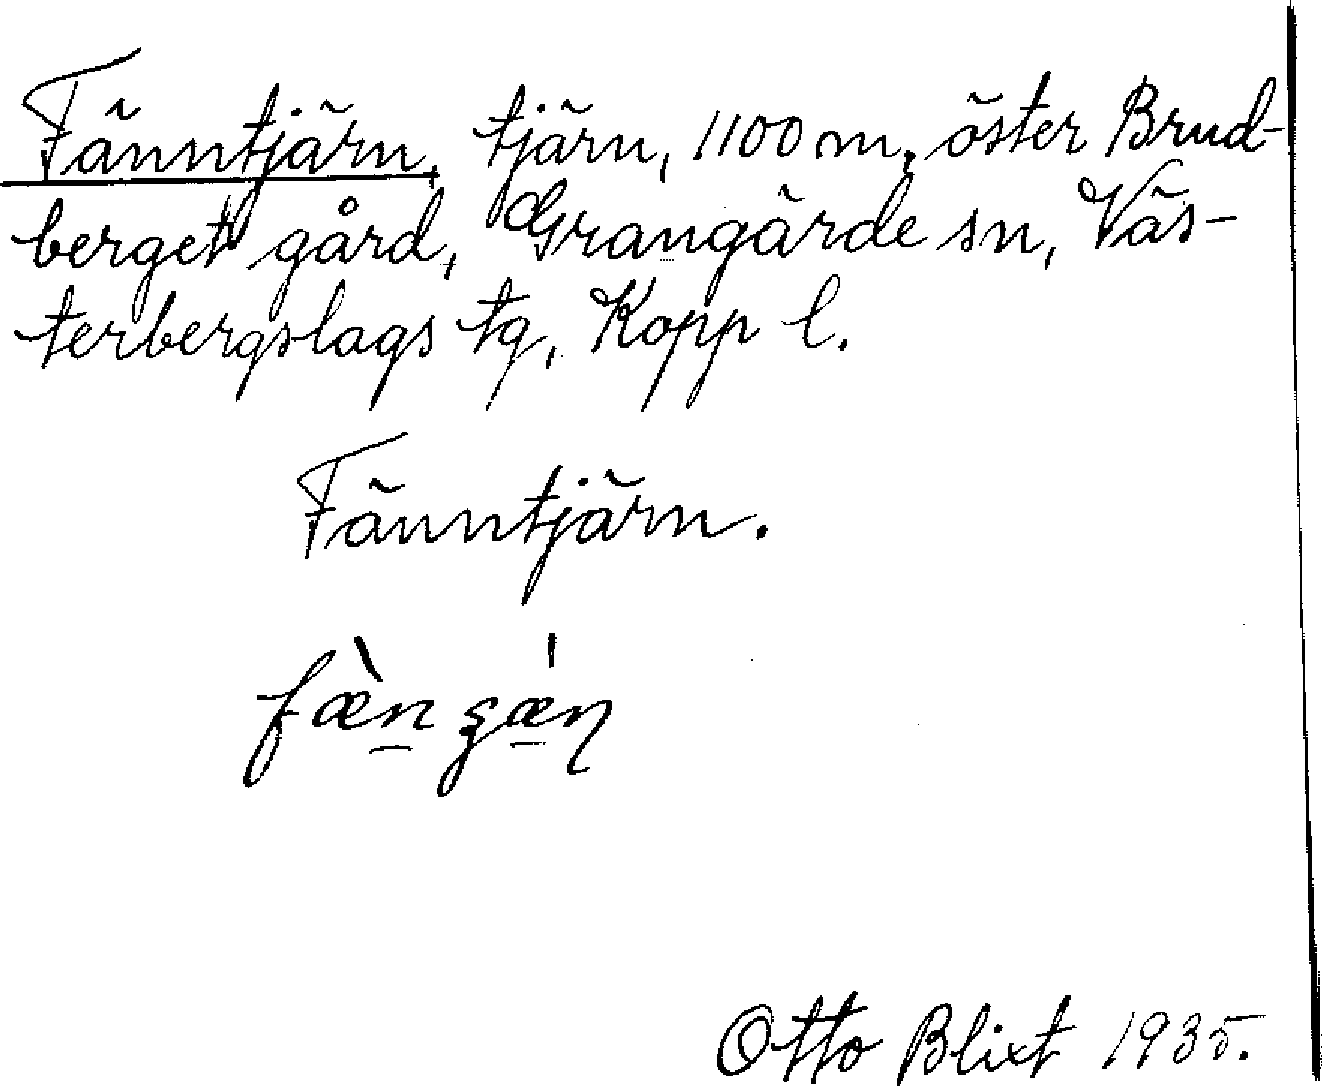 Fänntjärn, tjärn, 1100 m, öster Brud-
berget gård, Grangärde sn, Väs-
terbergslags tg, Kopp l.
Fänntjärn.
Otto Blixt 1935.